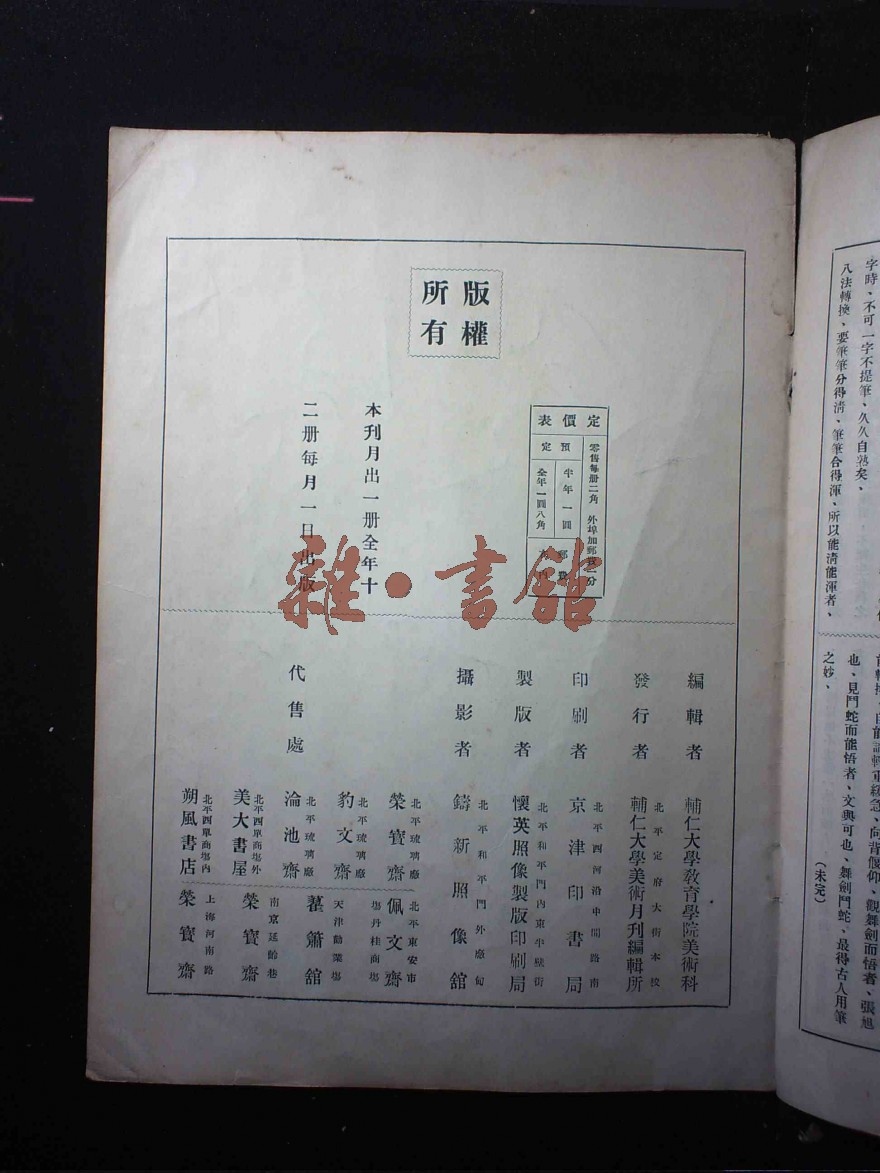 版權
所有
定價表
零售每册二角 外埠加郵
預定
半年一圓
全年一圓八角
郵費
本刊月出一册全年十
二册每月一日出版
雜·書館
編輯者
輔仁大學教育學院美術科
發行者
北平定府大街本校
輔仁大學美術月刊編輯所
印刷者
北平西河沿中間路南
京津印書局
製版者
北平和平門內東半壁街
懷英照像製版印刷局
攝影者
北平和平門外廠甸
鑄新照像館
代售處
北平琉璃廠
榮寶齋
北平東安市
場丹桂商場
佩文齋
北平琉璃廠
豹文齋
天津勸業場
藿簫舘
北平琉璃廠
淪池齋
南京延齡巷
榮寶齋
北平西單商場外
美大書屋
上海河南路
榮寶齋
北平西單商場內
朔風書店
字時、不可一字不提筆、久久自熟矣、
八法轉換、要筆筆分得淸、筆筆合得渾、所以能淸能渾者、
向背偃仰、觀舞劍而悟者、張旭
也、見鬥蛇而能悟者、文與可也、舞劍鬥蛇、最得古人用筆
之妙、
(未完)